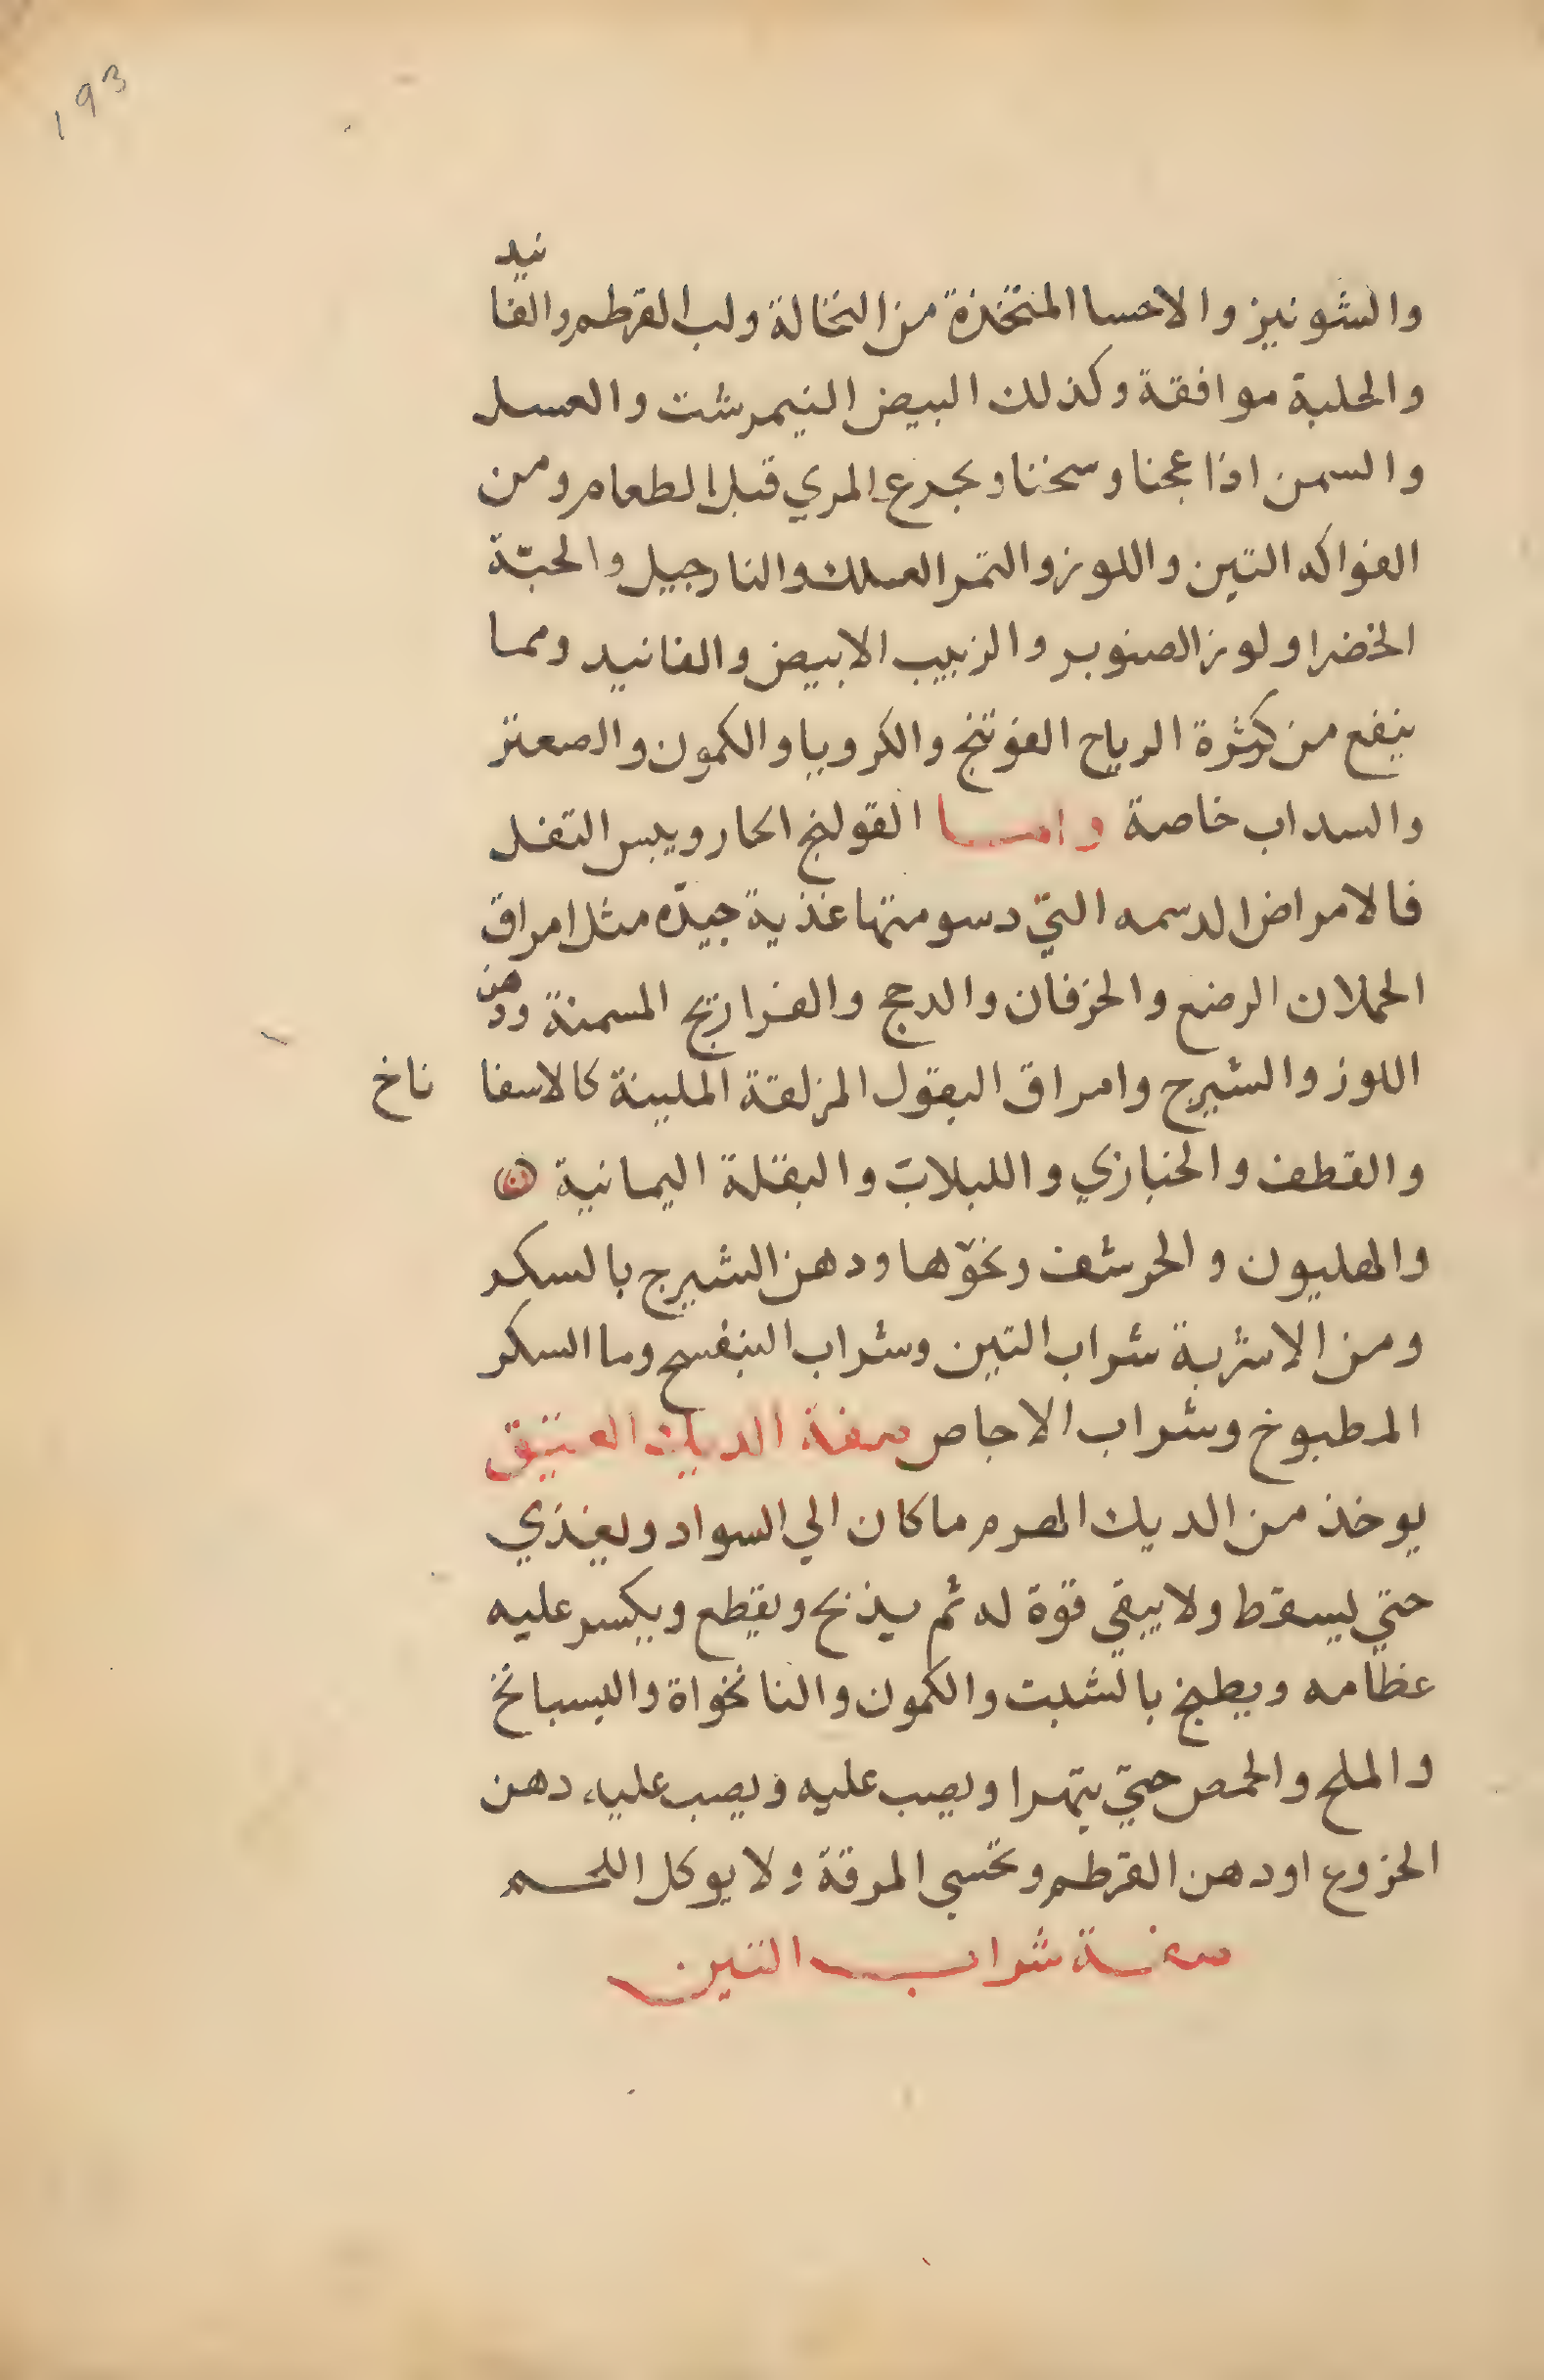 193
والشونيز والاحسا المتخذة من النخالة ولب القرطم والفانيد
والحلبة موافقة وكذلك البيض النيمرشت والعسل
والسمن اذا عجنا وسخنا وتجرع المري قبل الطعام ومن
الفواكه التين واللوز والتمر العلك والنارجيل والحبّة
الخضرا ولوز الصنوبر والزبيب الابيض والفانيد ومما
ينفع من كثرة الرياح الفوتنج والكرويا والكمون والصعتر
والسداب خاصة واما القولنج الحار ويبس التفل
فالامراض الدسمه التي دسومتها غذية جيدّه مثل امراق
الحملان الرضع والخرفان والدجج والفراريج المسمنة ودهن
اللوز والشيرج وامراق البقول المزلقة الملينة كالاسفا ناخ
والقطف والخبازي واللبلاب والبقلة اليمانية
والهليون والحرشف ونحوّها ودهن الشيرج بالسكر
ومن الاشربة شراب التين وشراب البنفسج وما السكر
المطبوخ وشراب الاجاص صفة الديك العتيق
يوخذ من الديك الهرم ما كان الي السواد ويغذي
حتي يسقط ولا يبقي قوة له ثم يذبح ويقطع ويكسر عليه
عظامه ويطبخ بالشبت والكمون والنانخواة والبسبانخ
والملح والحمص حتي يتهرا ويصب عليه ويصب عليه دهن
الخروع او دهن القرطم وتحسي المرقة ولا يوكل اللحم
صفة شراب التين